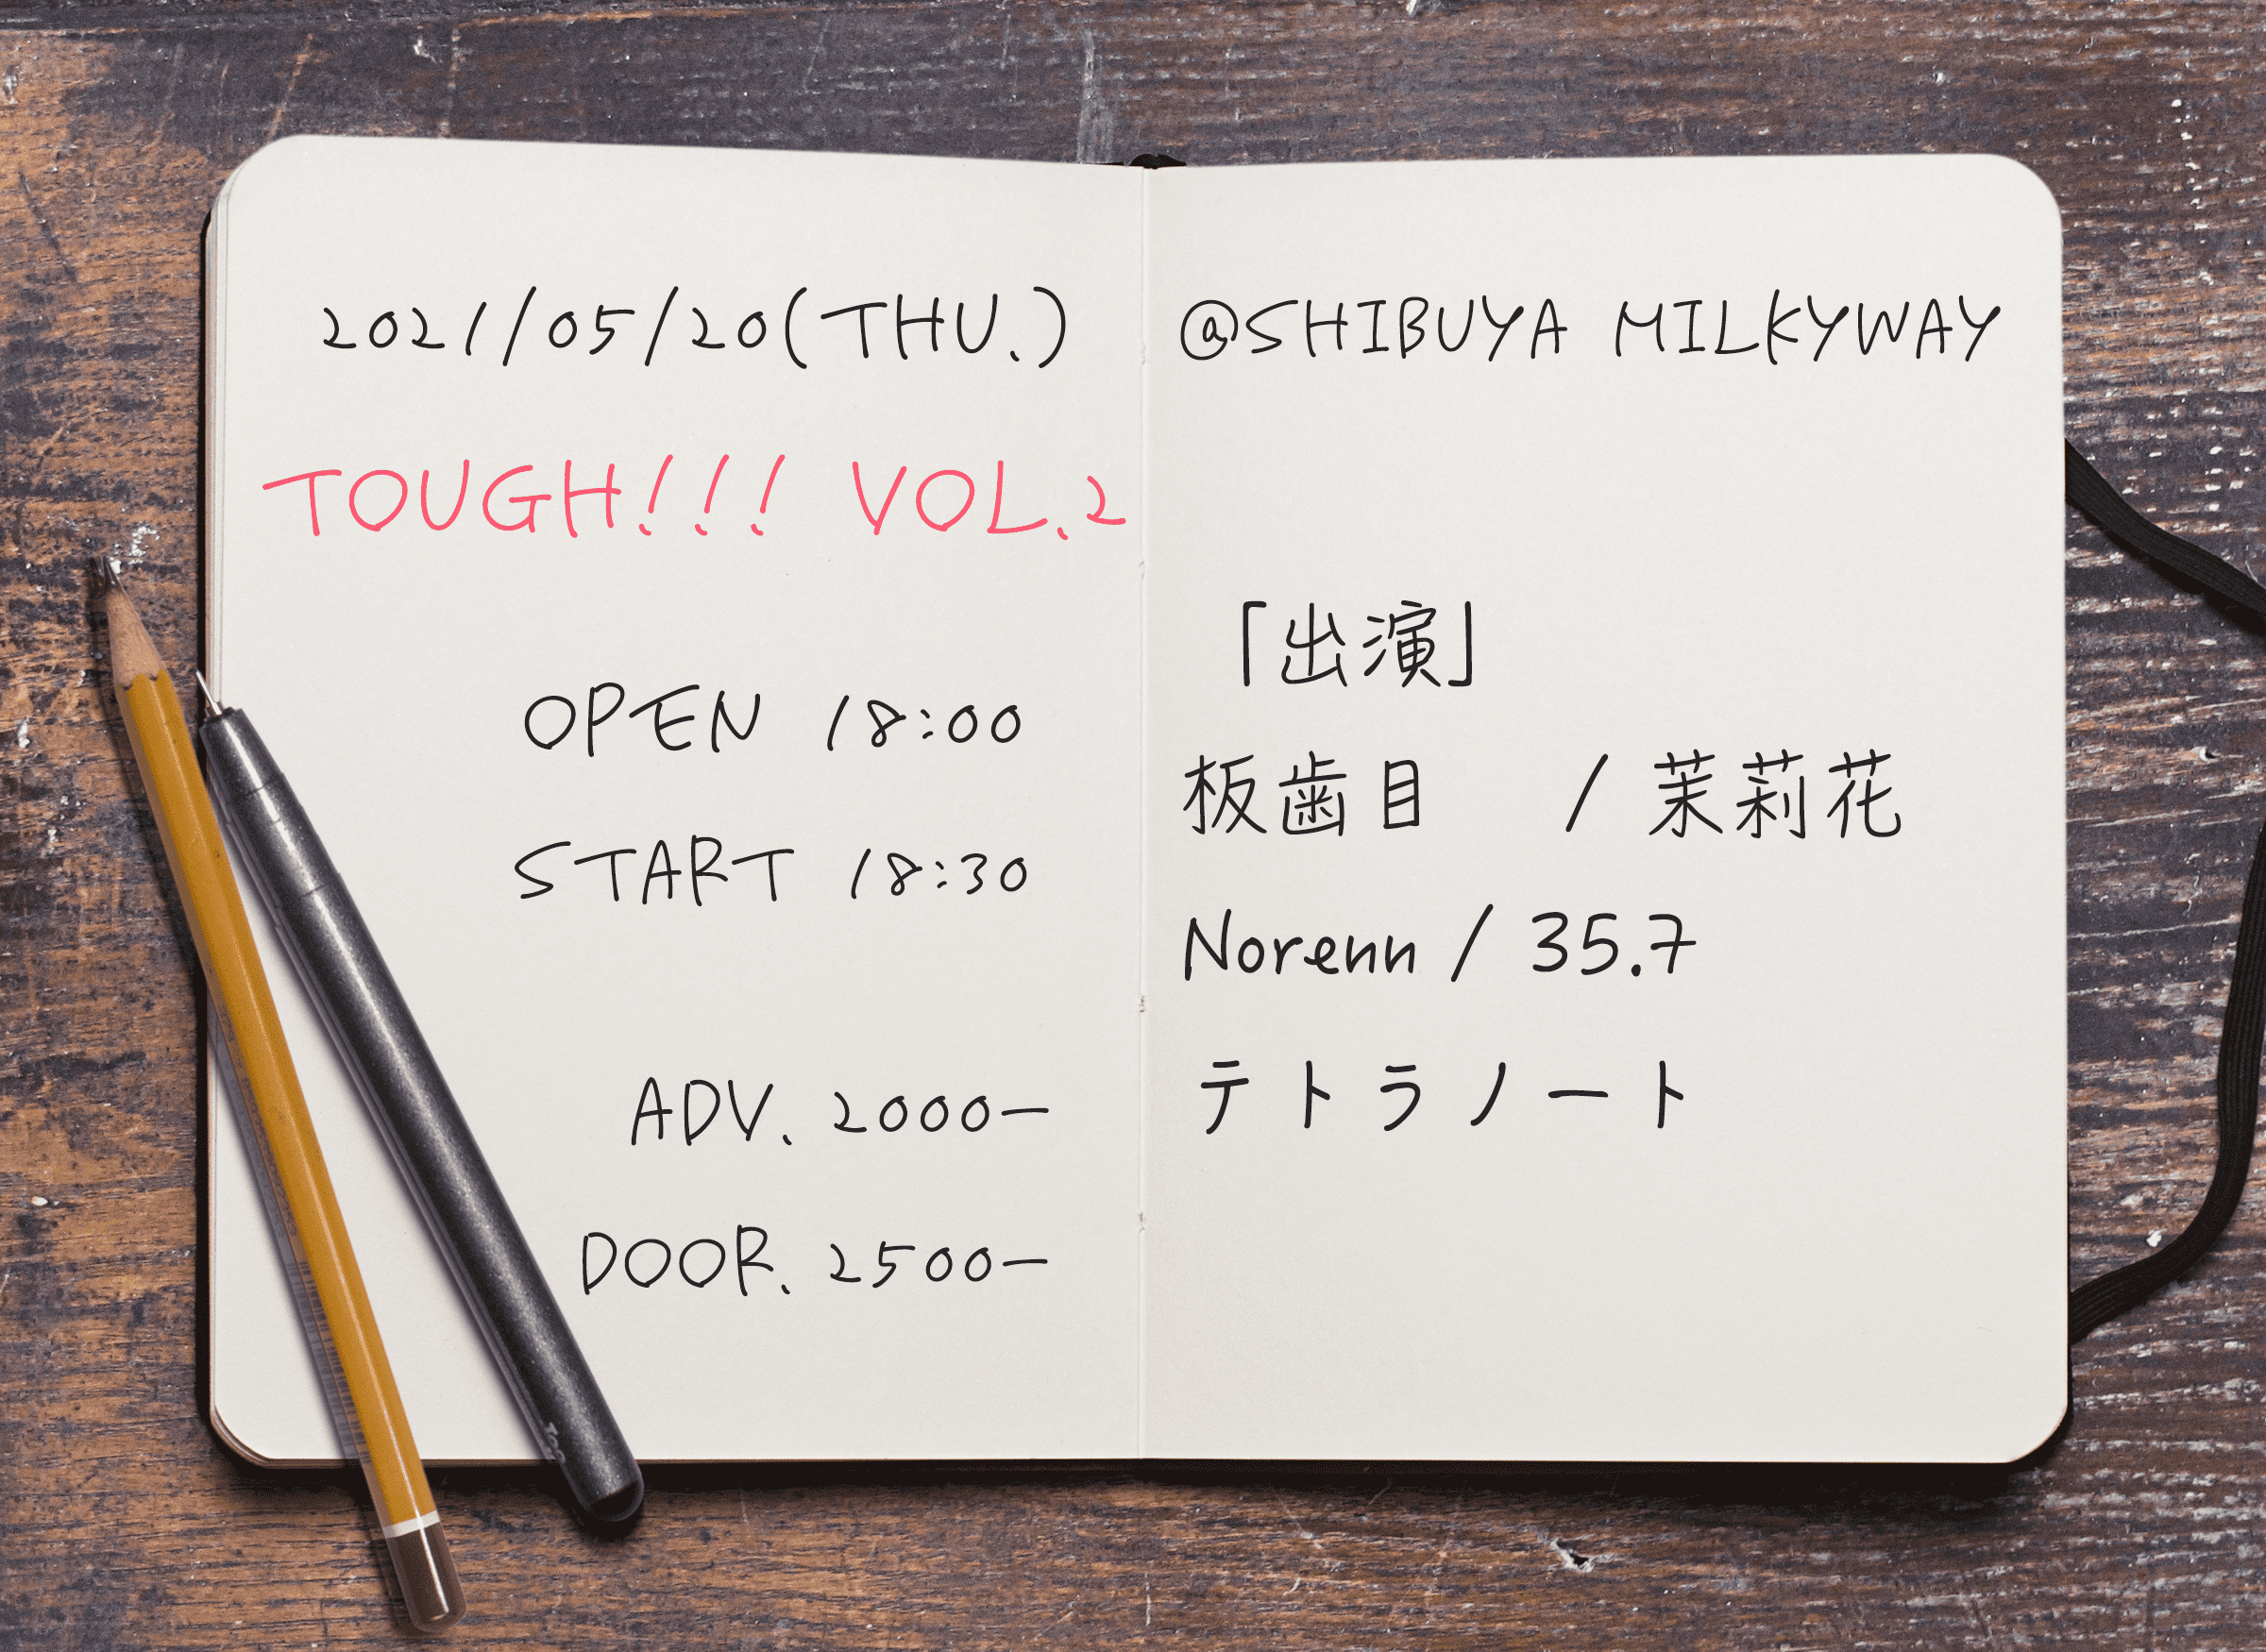 2021/05/20(THU.)
TOUGH!!! VOL.2
OPEN 18:00
START 18:30
ADV. 2000-
DOOR. 2500-
@SHIBUYA MILKYWAY
「出演」
板歯目 / 茉莉花
Norenn / 35.7
テトラノート